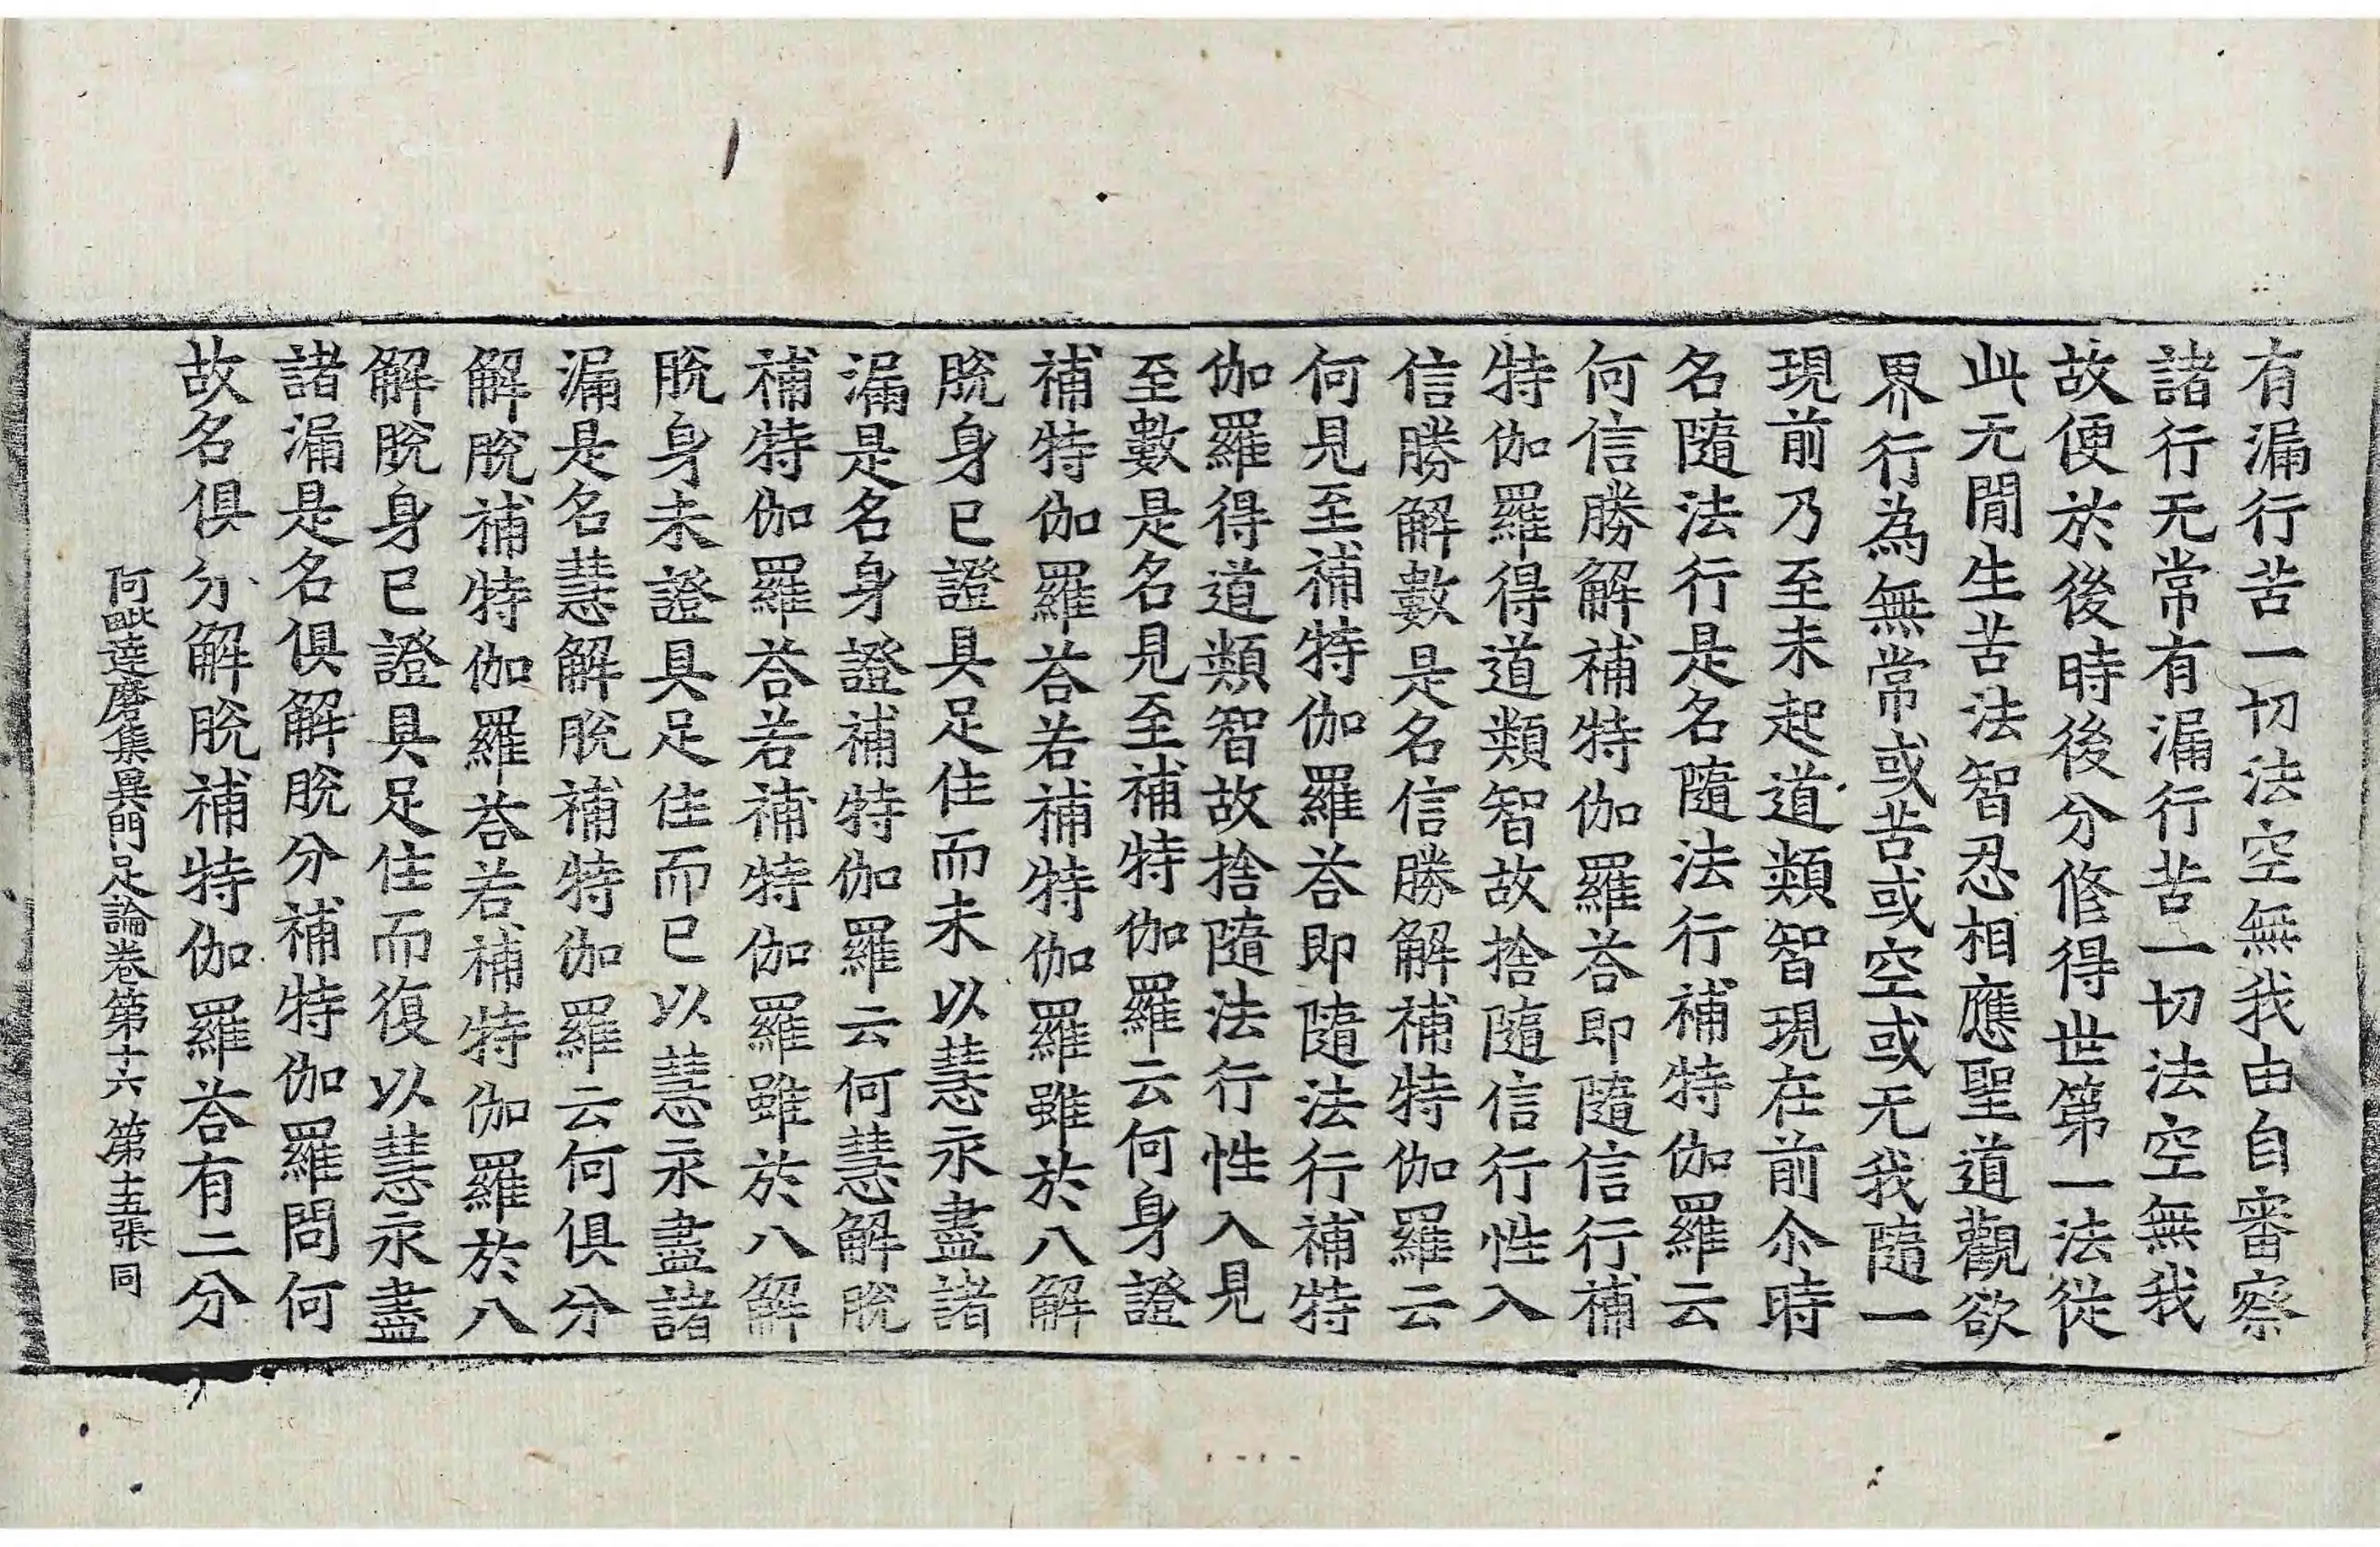 有漏行苦一切法空無我由自審察
諸行无常有漏行苦一切法空無我
故便於後時後分修得世第一法從
此无閒生苦法智忍相應聖道觀欲
界行為無常或苦或空或无我隨一
現前乃至未起道類智現在前尒時
名隨法行是名隨法行補特伽羅云
何信勝解補特伽羅荅即隨信行補
特伽羅得道類智故捨隨信行性入
信勝解數是名信勝解補特伽羅云
何見至補特伽羅荅即隨法行補特
伽羅得道類智故捨隨法行性入見
至數是名見至補特伽羅云何身證
補特伽羅荅若補特伽羅雖於八解
脫身已證具足住而未以慧永盡諸
漏是名身證補特伽羅云何慧解脫
補特伽羅荅若補特伽羅雖於八解
脫身未證具足住而已以慧永盡諸
漏是名慧解脫補特伽羅云何俱分
解脫補特伽羅荅若補特伽羅於八
解脫身已證具足住而復以慧永盡
諸漏是名俱解脫分補特伽羅問何
故名俱分解脫補特伽羅荅有二分
阿毗達磨集異門足論卷第十六 第十五張 同